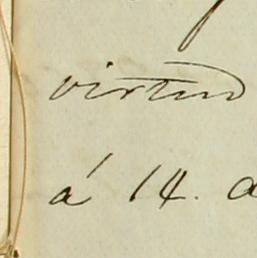 virtud
á 14. d